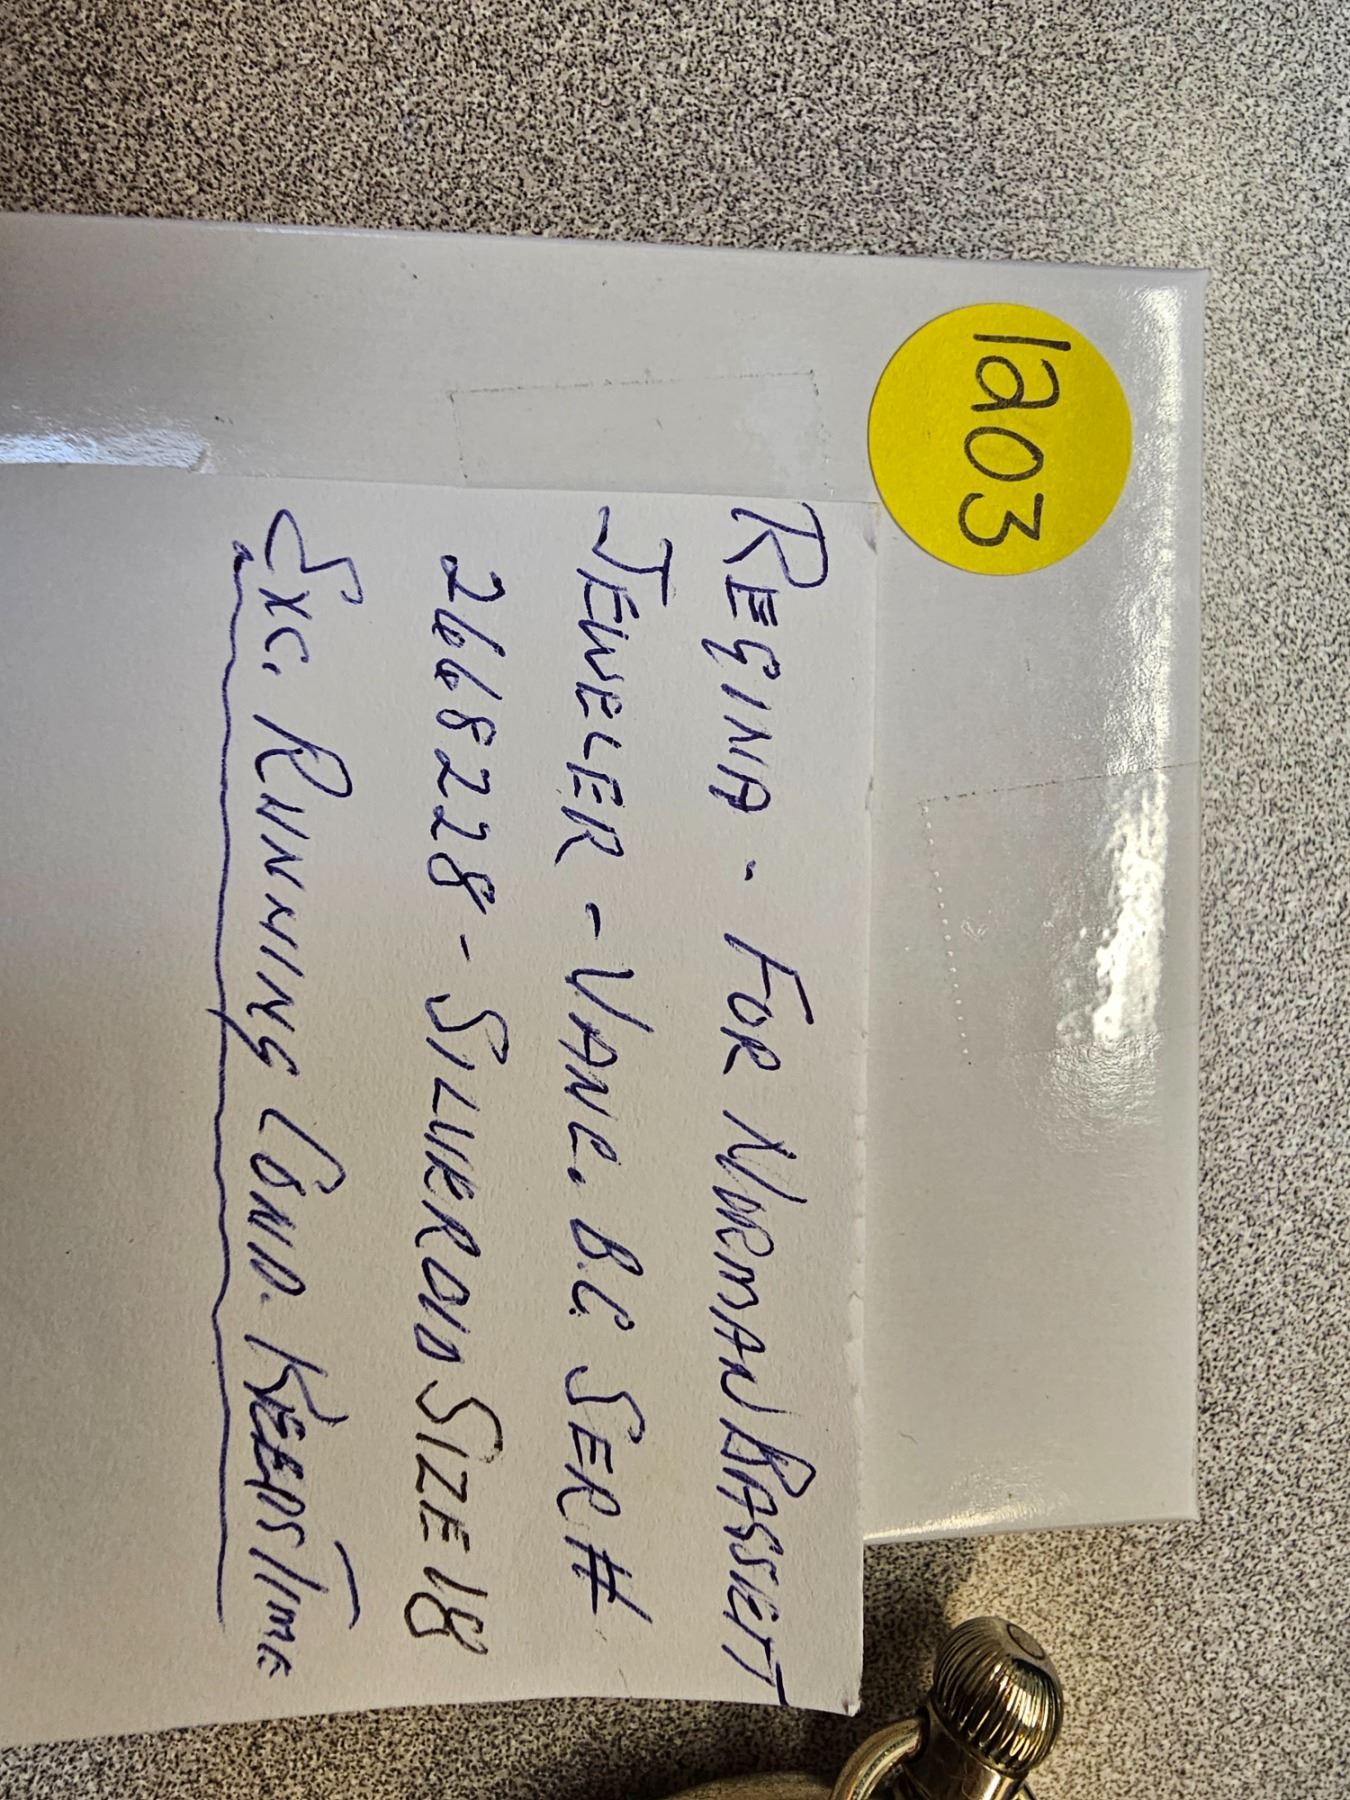 1203
REGINA - FOR NORMAN BASSETT
JEWELER - VANC. B.C. SER #
2668228 - SILVEROID SIZE 18
EXC. RUNNING COND. KEEPS TIME